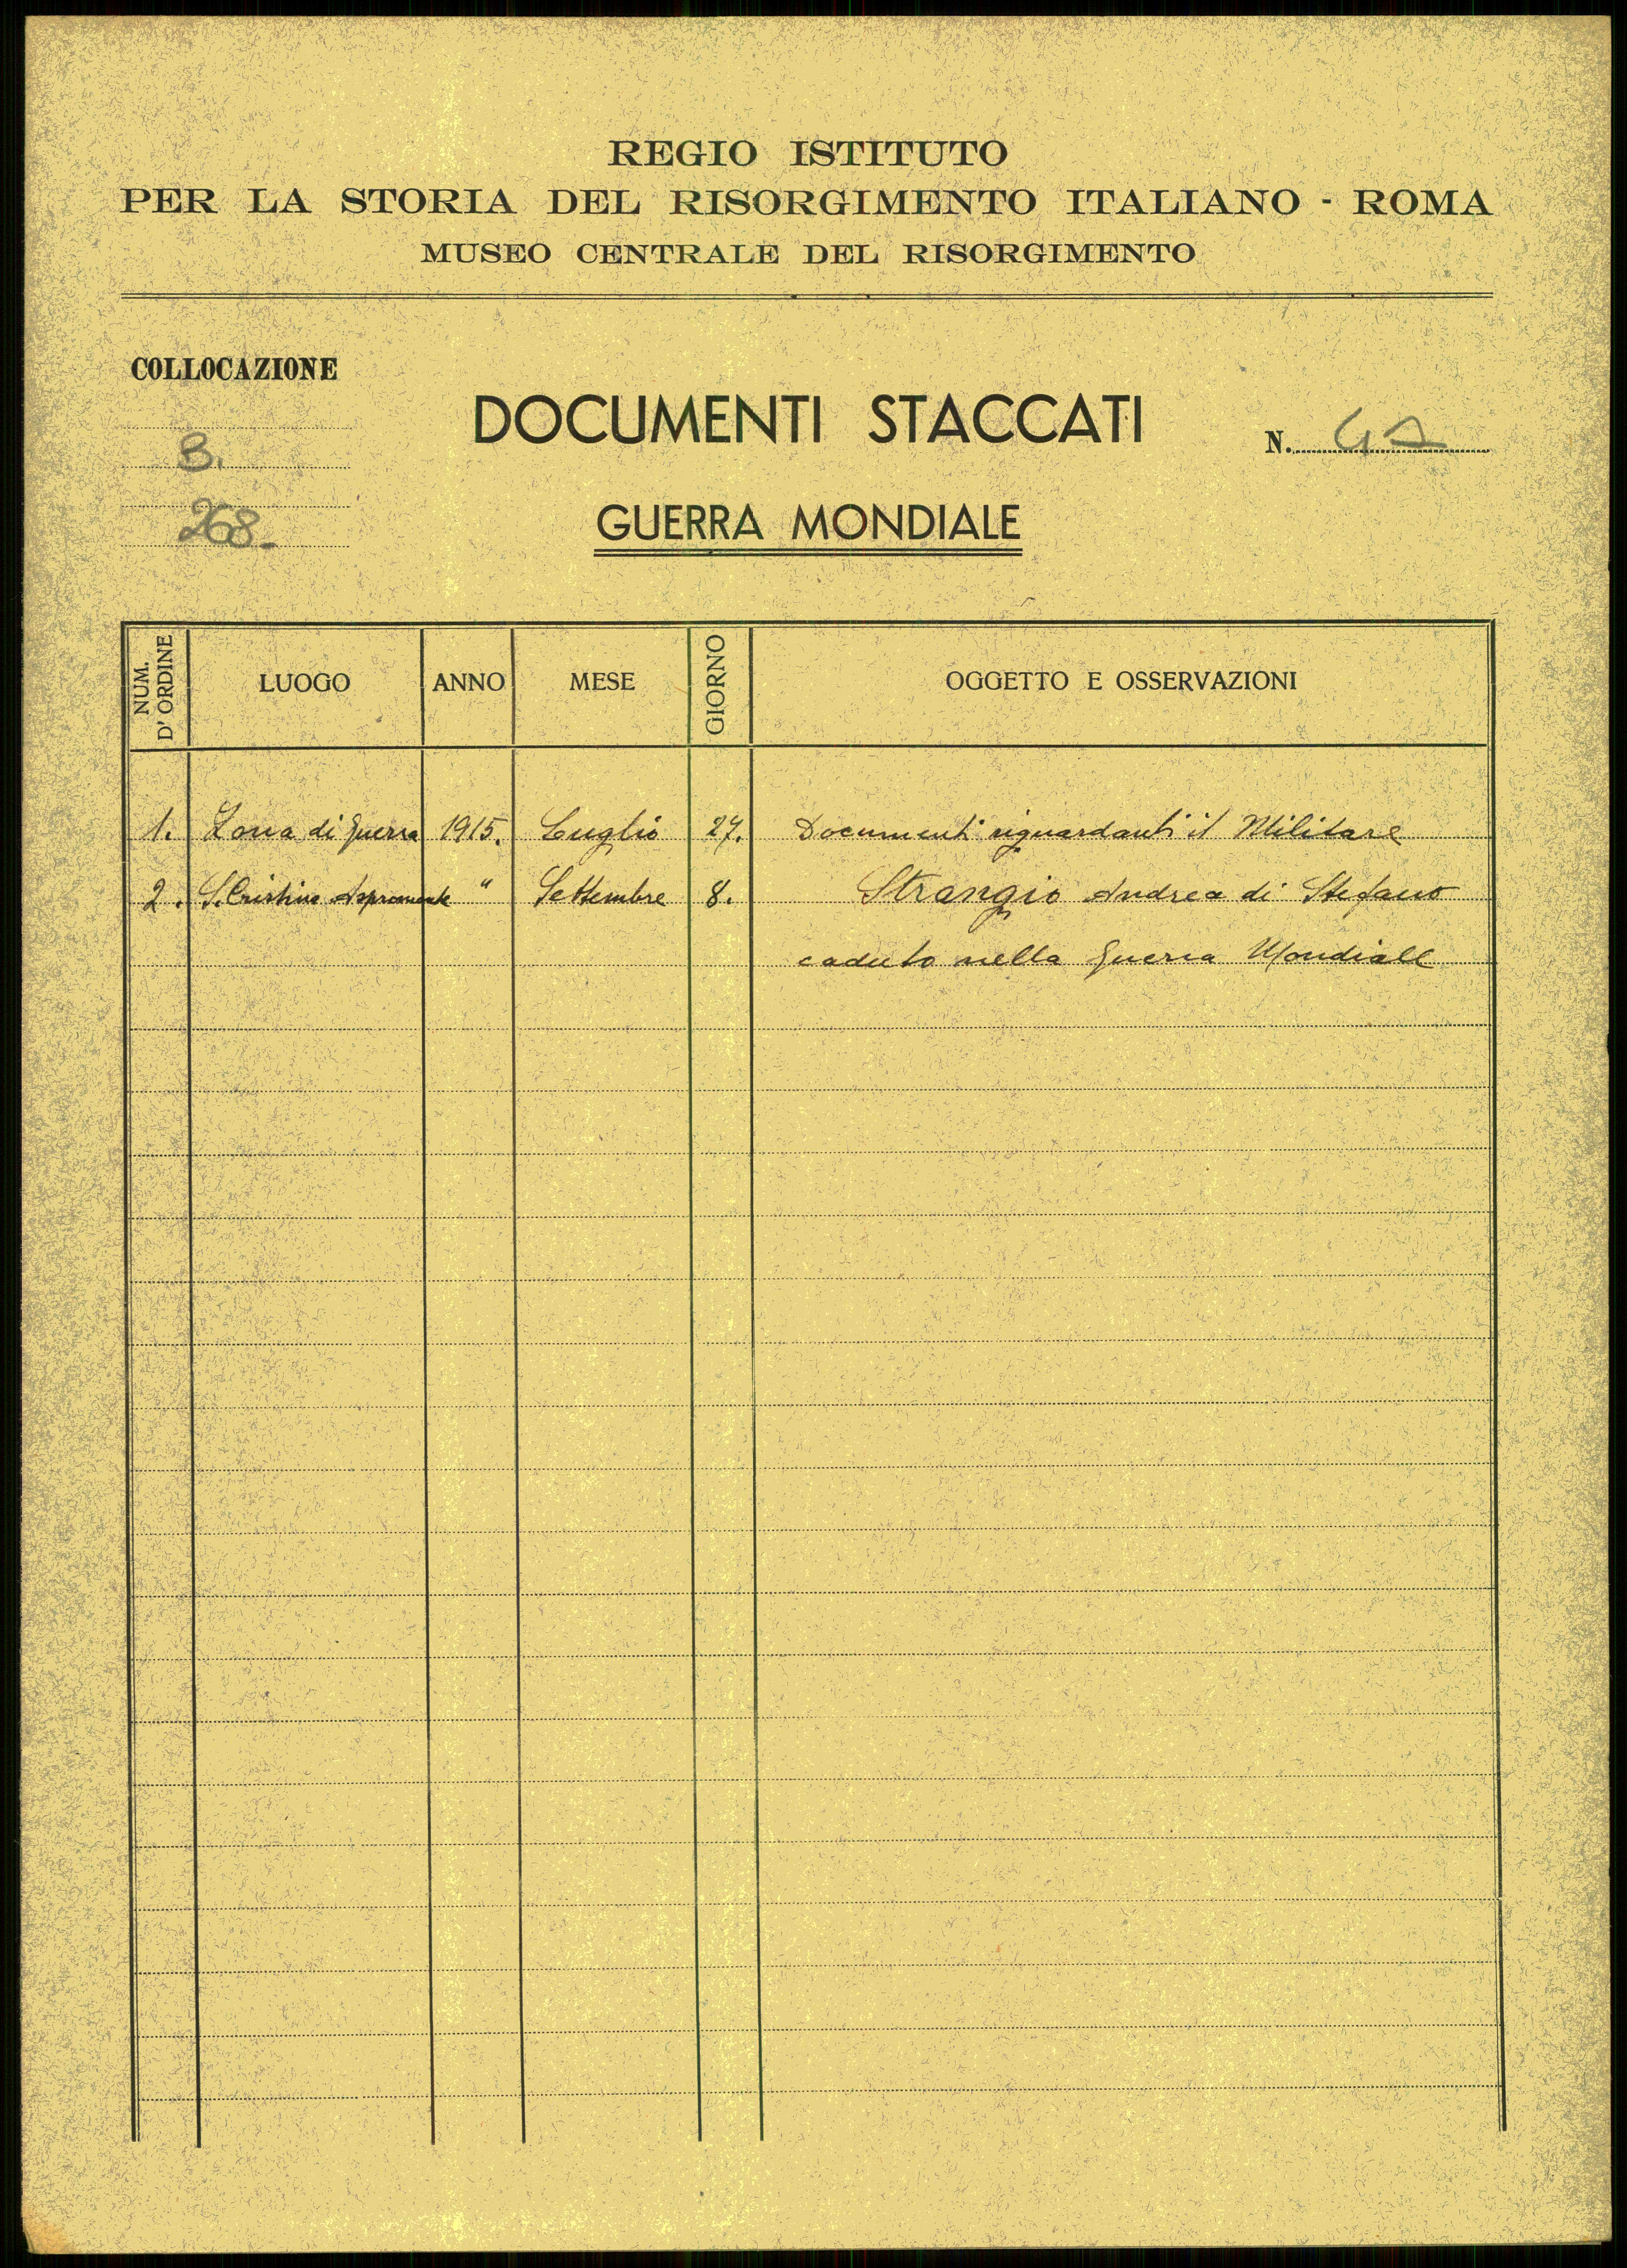 REGIO ISTITUTO
PER LA STORIA DEL RISORGIMENTO ITALIANO - ROMA
MUSEO CENTRALE DEL RISORGIMENTO
COLLOCAZIONE
B.
268.
DOCUMENTI STACCATI
N. 47
GUERRA MONDIALE
NUM. D'ORDINE LUOGO ANNO MESE GIORNO OGGETTO E OSSERVAZIONI
1. Zona di Guerra 1915. Luglio 27. Documenti riguardanti il Militare
2. S. Cristina Aspromonte " Settembre 8. Strangio Andrea di Stefano
caduto nella Guerra Mondiale